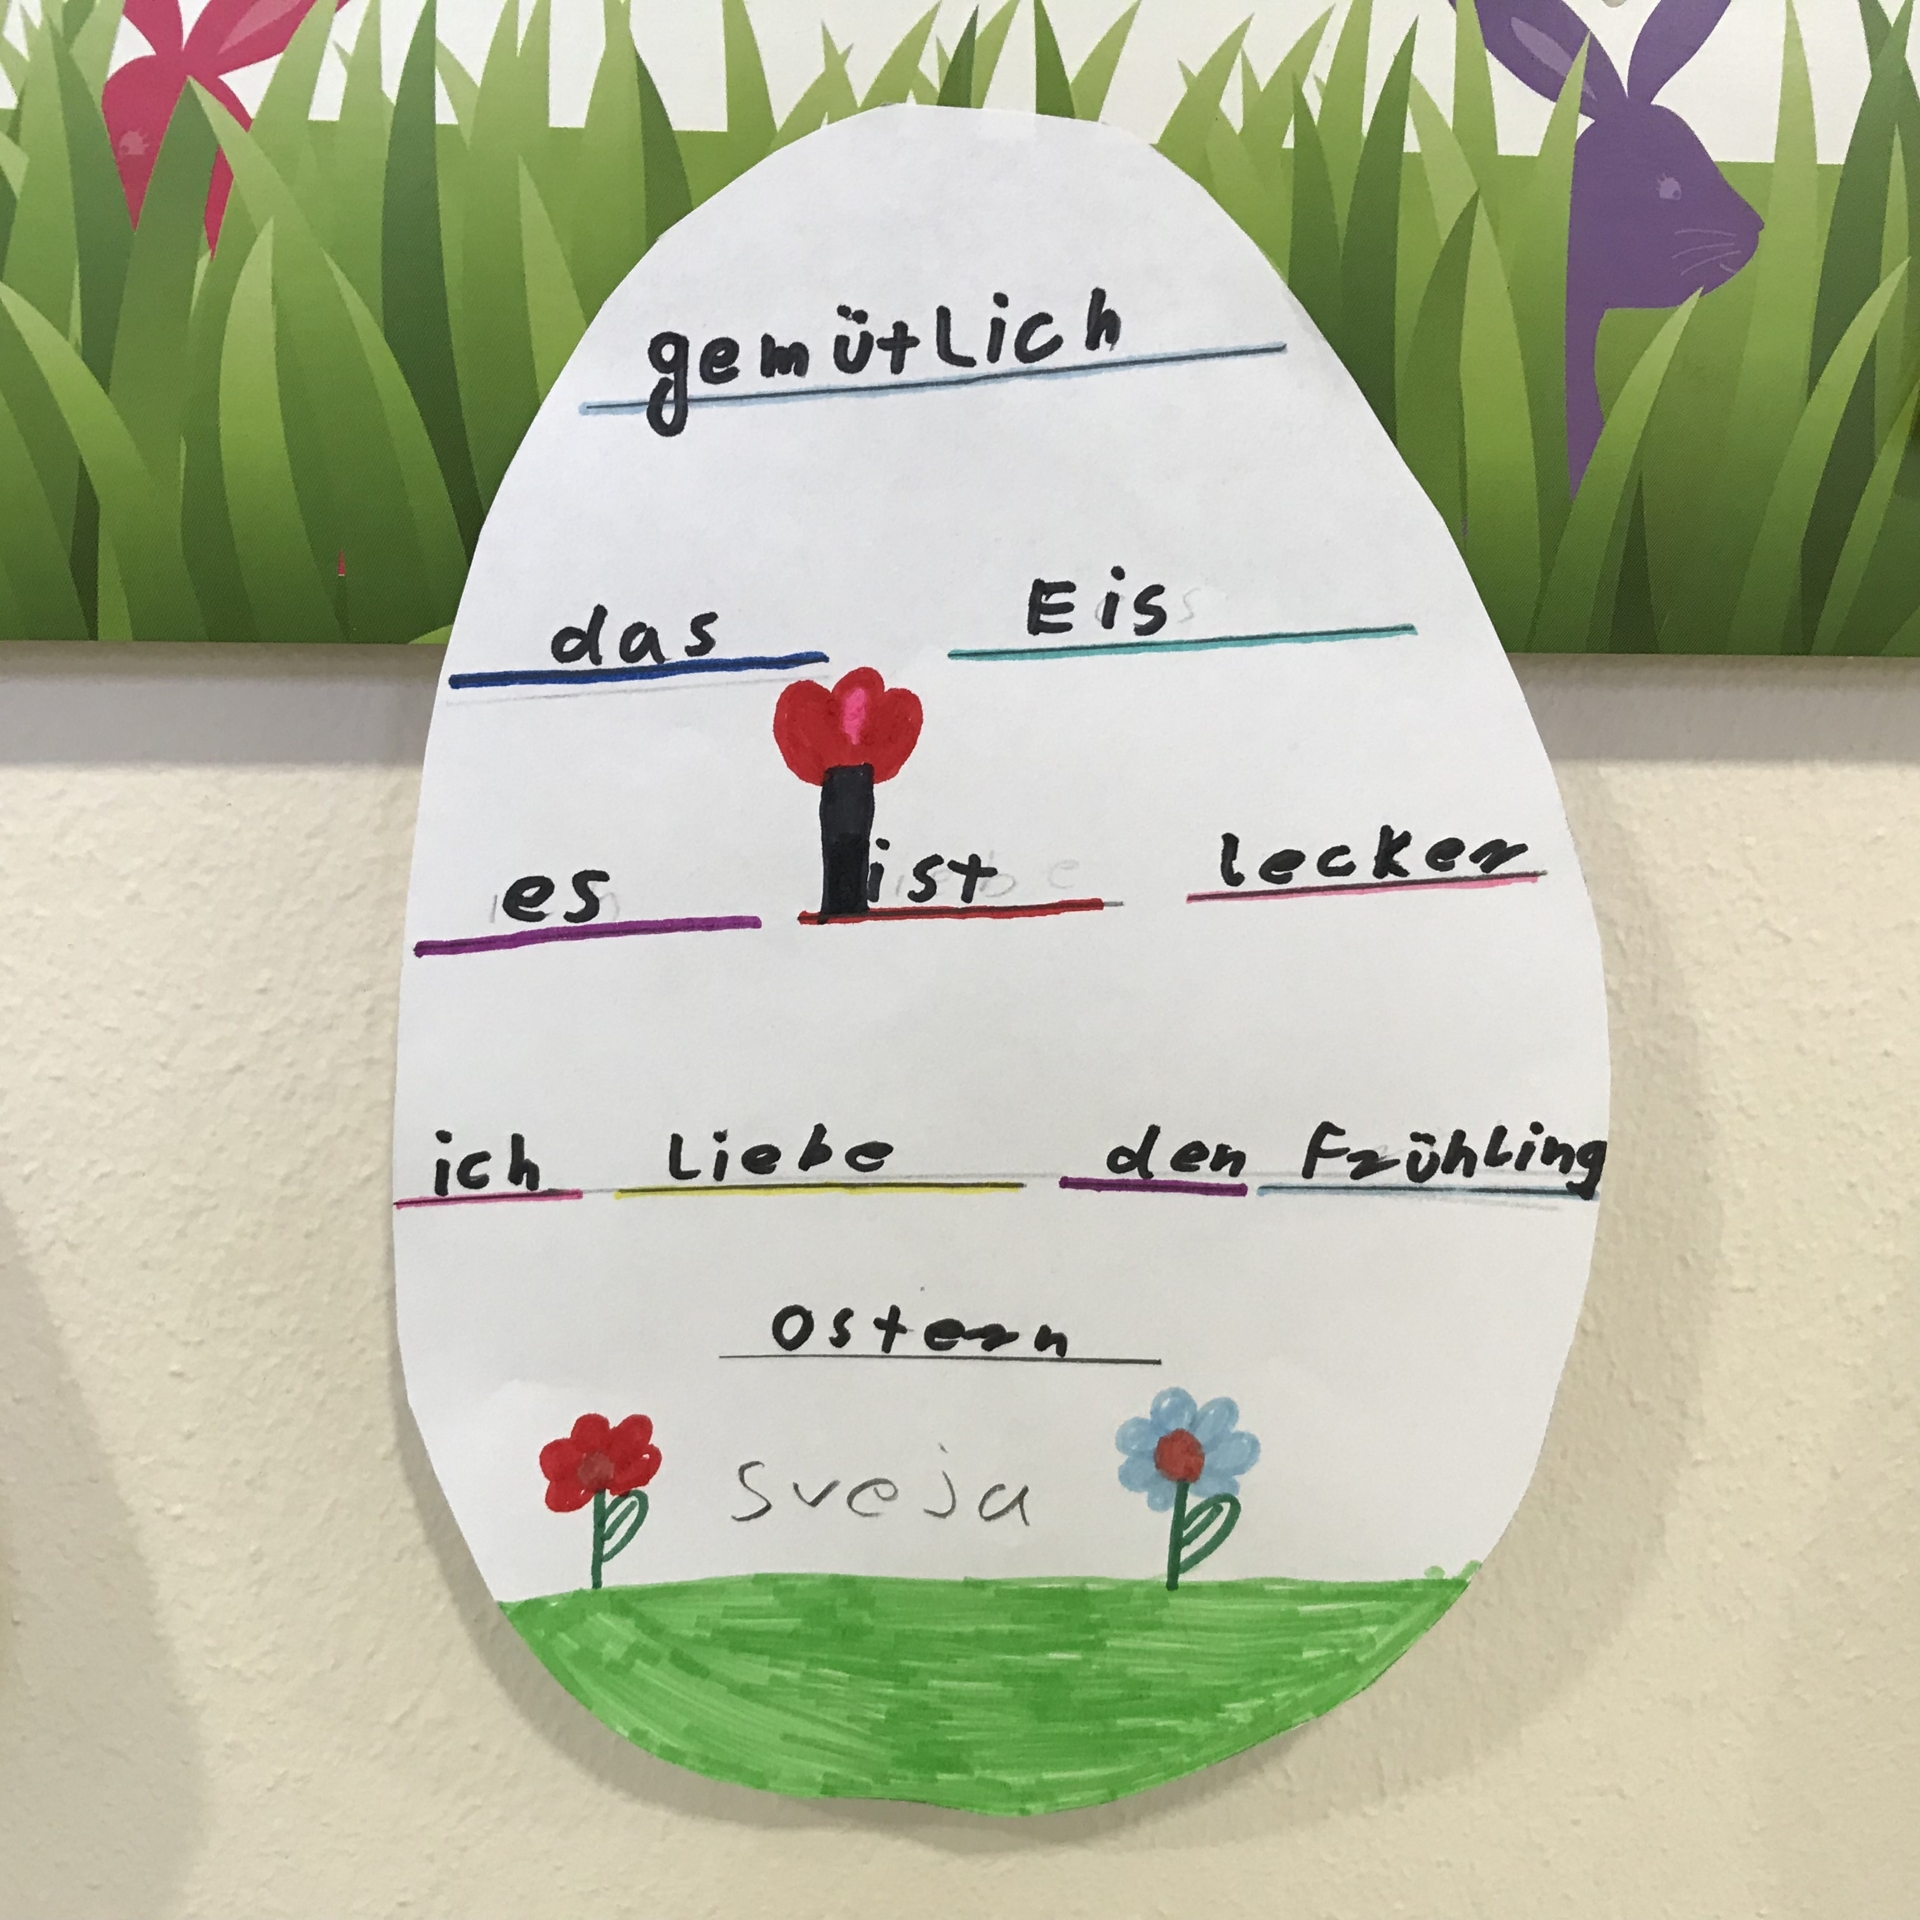 gemütlich
das Eis
es ist lecker
ich Liebe den Frühling
Ostern
Sveja